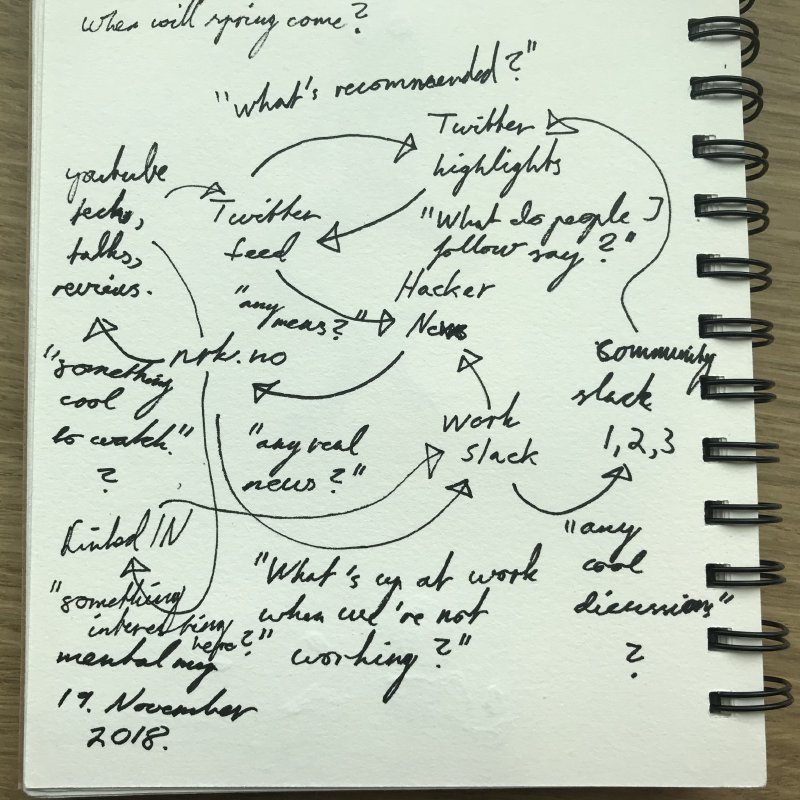 when will spring come?
"What's recommended?"
Twitter
highlights
"What do people I
follow say?"
youtube
techs,
talks,
reviews.
Twitter
feed
"any
news?"
Hacker
News
nrk.no
"something
cool
to watch."
?
"any real
news?"
work
slack
community
slack
1,2,3
"any
cool
discussions"
?
LinkedIN
"something
interesting
here?"
"What's up at work
when we're not
working?"
mental map
19. November
2018.